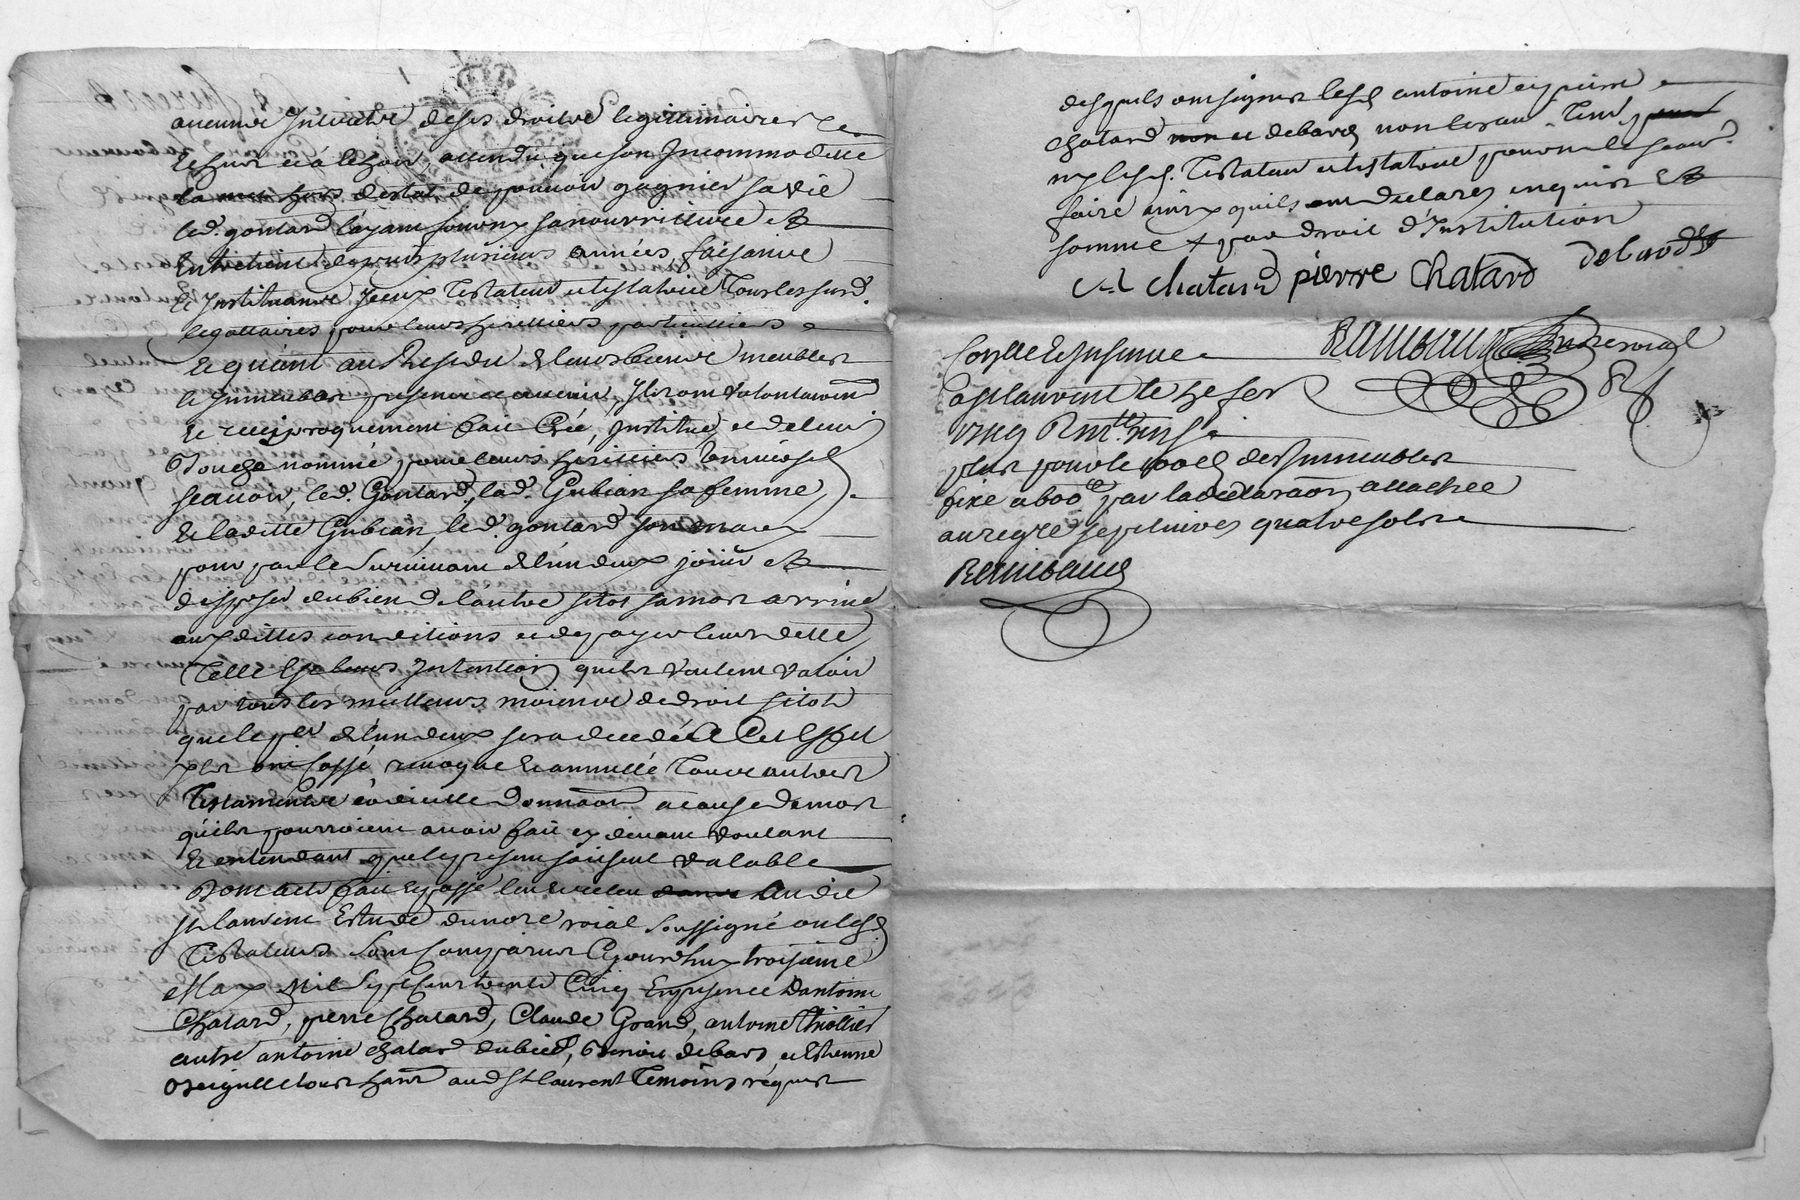 aucune de ses droits legitimaires
attendu que son Jncommodette
la met hors destat de pouvoir gagnier sa vie
led. goutard layant fourny sa nourriture et
Entretient depuis plusieurs années faisant
et Jnstituant yceux Testateur et testatrice Tous les surd.
legattaires pour leurs herittiers particulliers
Et quant au Residu de leurs biens meubles
et Jmmeubles presents et avenir, Jls ont volontairemt
et reciproquement fait Créé, Jnstitué et de leur
Bouche nommé pour leurs heritiers
scavoir, led. Goutard, lad. Gubian sa femme,
et laditte Gubian, led. goutard son mary
pour par le survivant de l'un deux jouir et
disposer du bien de lautre sitot sa mort arrivé
auxdittes conditions et de payer leurs dette
Telle est leurs Jntention quils veulent valoir
par tous les meilleurs moiens de droit sitot
que le per de l'un deux sera decedé a Cet Effet
Jls ont Cassé revoqué et annullé Tous autres
Testaments codicille Donnaon a cause de mort
quils pourroient avoir fait cy devant voulant
et entendant que le present soit seul valable
Dont acte fait et passé leu et releu audit
st laurent Estude du nore roial soussigné ou lesd.
Testateurs sont comparus Cejourdhuy troisieme
May Mil Sept Cent trente Cinq En presence Dantoine
Chatard, pierre Chatard, Claude Grand, antoine thiollier
autre antoine chatard dubief, Benoit debard et Etienne
tous hants aud st laurent Temoins requis
desquels ont signer lesd antoine et pierre
chatard non et debard non les aut. Tem.
ny lesd. Testateur et testatrice pour ne le scavr.
faire ainsy quils ont declarez enquis et
sommé par droit d'Jnstitution
A chatard pierre Chatard debard
Conlle et Jnsinué Raimbaud nre roial
a st laurent le
pour le des Jmmeubles
fixé a 600ll par la declaraon attachée
au regre sept livres quatre sols
Raimbaud